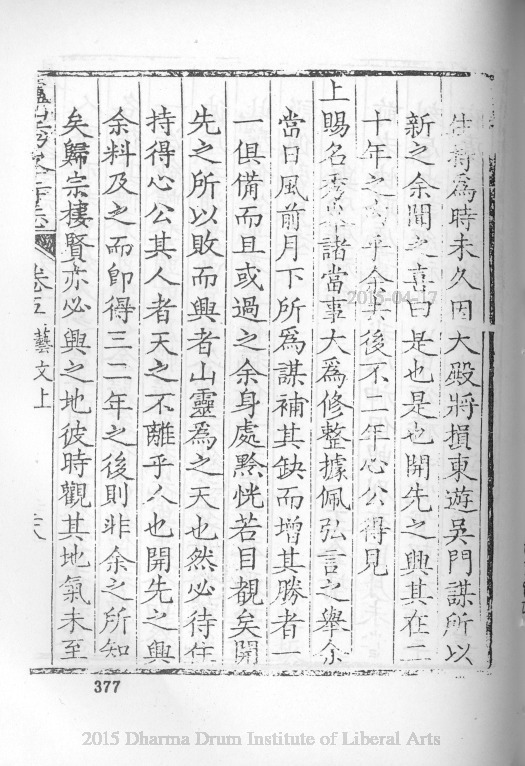 住持為時未久因大殿將損東遊吳門謀所以
新之余聞之喜曰是也是也開先之興其在二
十年之內乎余去後不二年心公得見
上賜名秀峯諸當事大為修整據佩弘言之舉余
當日風前月下所為謀補其缺而增其勝者一
一俱備而且或過之余身處黔恍若目覩矣開
先之所以敗而興者山靈為之天也然必待住
持得心公其人者天之不離乎人也開先之興
余料及之而即得三二年之後則非余之所知
矣歸宗棲賢亦必興之地彼時觀其地氣未至
卷五 藝文上
377
2015-04-17
2015 Dharma Drum Institute of Liberal Arts